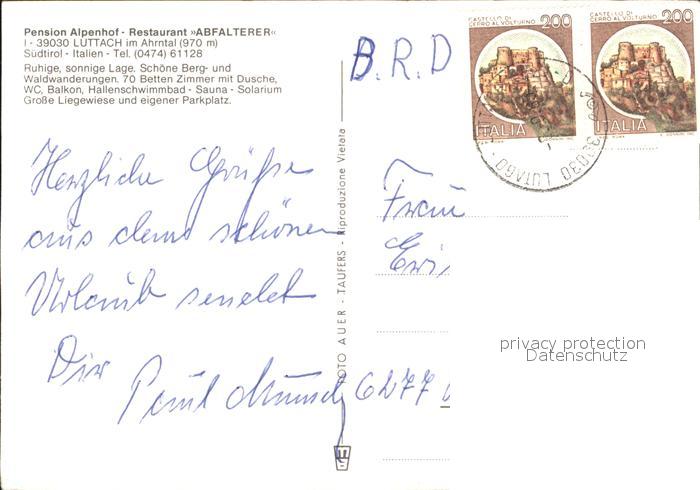 Pension Alpenhof - Restaurant »ABFALTERER«
I - 39030 LUTTACH im Ahrntal (970 m)
Südtirol - Italien - Tel. (0474) 61128
Ruhige, sonnige Lage. Schöne Berg- und
Waldwanderungen. 70 Betten Zimmer mit Dusche,
WC, Balkon, Hallenschwimmbad - Sauna - Solarium
Große Liegewiese und eigener Parkplatz.
Herzliche Grüße
aus dem schönen
Urlaub sendet
Dir
FOTO AUER - TAUFERS - Riproduzione Vietata
B.R.D
CASTELLO DI
CERRO AL VOLTURNO 200
ITALIA
CASTELLO DI
CERRO AL VOLTURNO 200
ITALIA
39030 LUTAGO
Frau
6277
privacy protection
Datenschutz